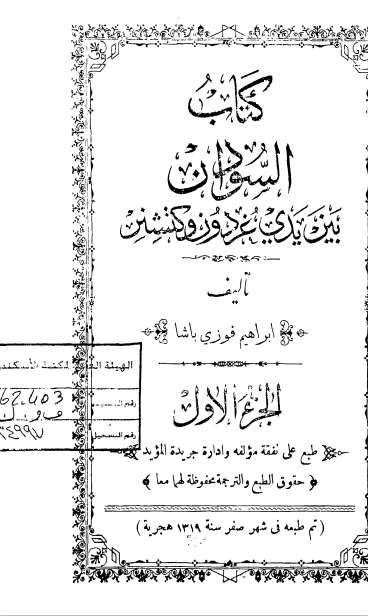 كتاب
السودان
بين يدي غردون وكتشنر
تأليف
ابراهيم فوزي باشا
الجزء الاول
طبع على نفقة مؤلفه وادارة جريدة المؤيد
حقوق الطبع والترجمة محفوظة لهما معا
( تم طبعه فى شهر صفر سنة ١٣١٩ هجرية )
الهيئة العامة لمكتبة الأسكندر
رقم التسجيل